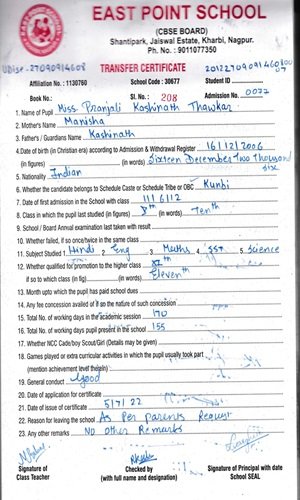 EAST POINT SCHOOL
(CBSE BOARD)
Shantipark, Jaiswal Estate, Kharbi, Nagpur.
Ph. No. : 9011077350
Udise - 27090914608
TRANSFER CERTIFICATE
Affiliation No. : 1130760 School Code : 30677 Student ID
Book No.: Sl. No. 208 Admission No.: 0077
1. Name of Pupil Miss Pranjali Kashinath Thawkar
2. Mother's Name Manisha
3. Fathers / Guardians Name Kashinath
4. Date of birth (in Christian era) according to Admission & Withdrawal Register 16/12/2006
(in figures) (in words) Sixteen December Two thousand six
5. Nationality Indian
6. Whether the candidate belongs to Schedule Caste or Schedule Tribe or OBC Kunbi
7. Date of first admission in the School with class 11/6/12
8. Class in which the pupil last studied (in figures) (in words) Tenth
9. School / Board Annual examination last taken with result
10. Whether failed, if so once/twice in the same class
11. Subject Studied : 1 Hindi 2 Eng 3 Maths 4 SST 5 Science
12. Whether qualified for promotion to the higher class
if so to which class (in fig) (in words) Eleventh
13. Month upto which the pupil has paid school dues
14. Any fee concession availed of if so the nature of such concession
15. Total No. of working days in the academic session 170
16. Total No. of working days pupil present in the school 155
17. Whether NCC Cade/boy Scout/Girl (Details may be given)
18. Games played or extra curricular activities in which the pupil usually took part
(mention achievement level therein)
19. General conduct Good
20. Date of application for certificate
21. Date of issue of certificate 5/7/22
22. Reason for leaving the school As Per parents Request
23. Any other remarks No other Remarks
Signature of Class Teacher
Checked by (with full name and designation)
Signature of Principal with date School SEAL